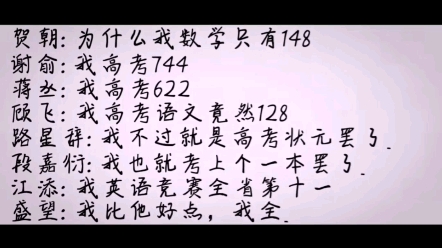 贺朝:为什么我数学只有148
谢俞:我高考744
蒋丞:我高考622
顾飞:我高考语文竟然128
路星辞:我不过就是高考状元罢了.
段嘉衍:我也就考上个一本罢了.
江添:我英语竞赛全省第十一
盛望:我比他好点，我全.